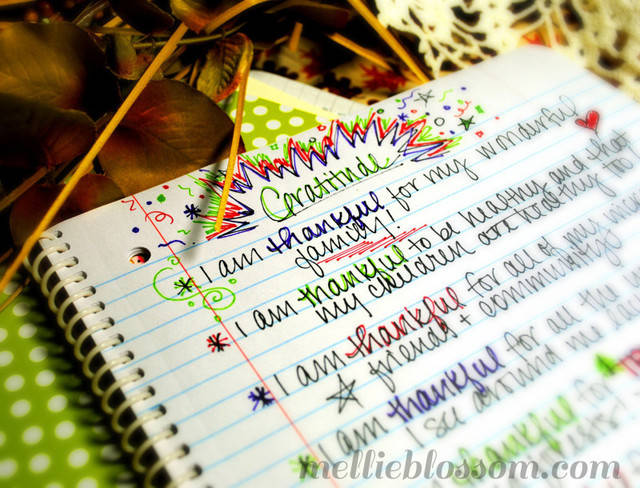 Gratitude
* I am thankful for my wonderful
family!
* I am thankful to be healthy and that
my children are healthy too
* I am thankful for all of my
friends + community
* I am thankful for all the
I see around me
* I am thankful for
mellieblossom.com